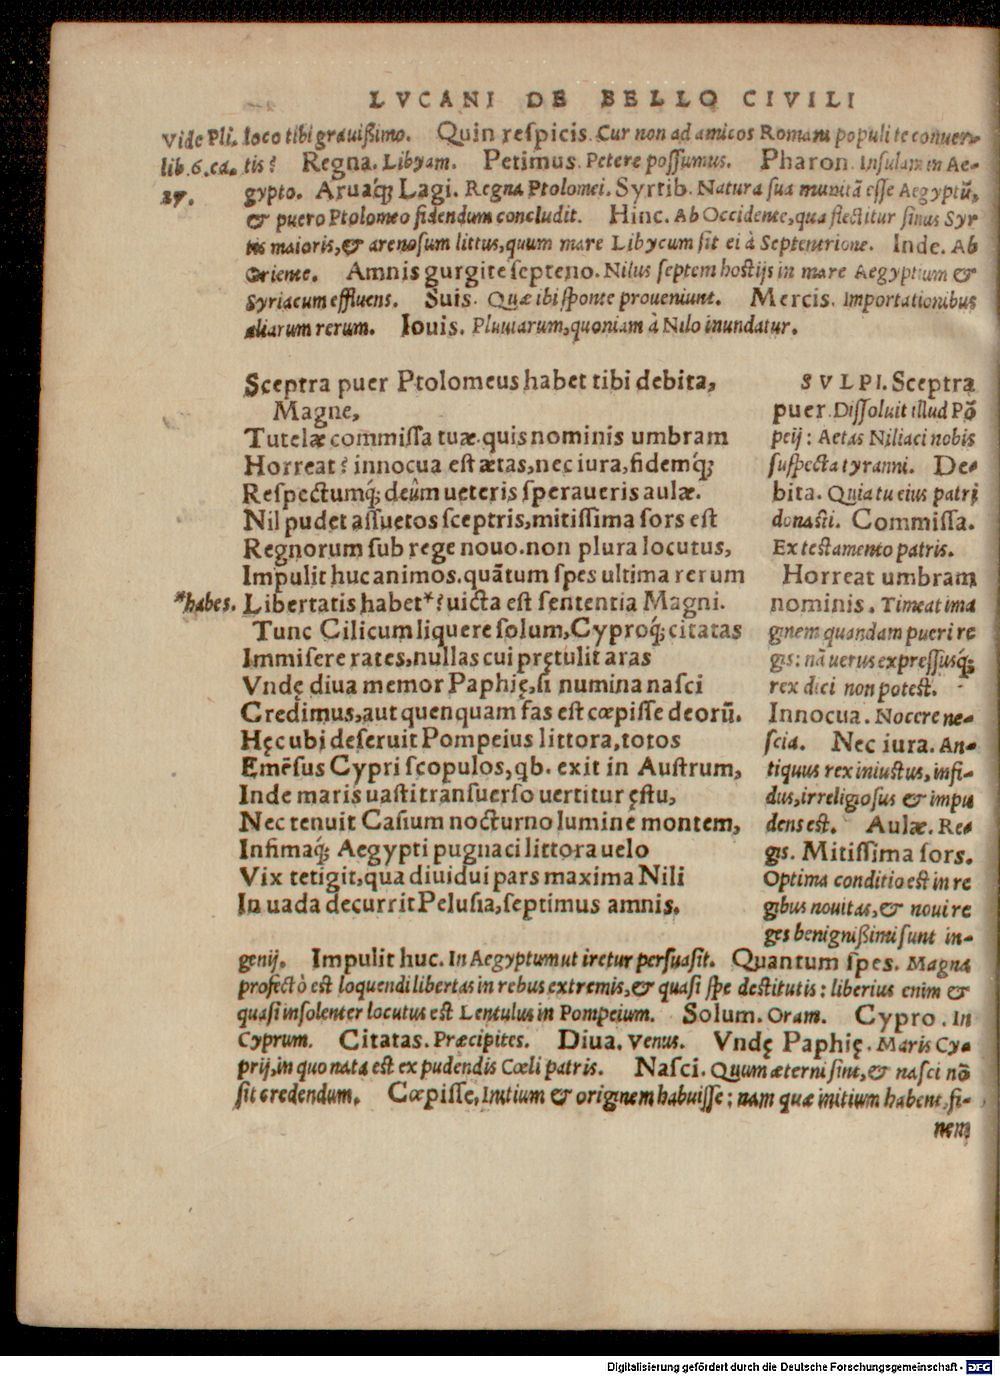 LVCANI DE BELLO CIVILI
Vide Pli. loco tibi grauißimo. Quin respicis. Cur non ad amicos Romani populi te conuer-
lib. 6. ca. tis? Regna. Libyam. Petimus. Petere possumus. Pharon. Insulam in Ae-
27. gypto. Aruaq́; Lagi. Regna Ptolomei. Syrtib. Natura sua munitã esse Aegyptũ,
& puero Ptolomeo fidendum concludit. Hinc. Ab Occidente, qua flectitur sinus Syr
tis maioris, & arenosum littus, quum mare Libycum sit ei à Septentrione. Inde. Ab
Oriente. Amnis gurgite septeno. Nilus septem hostijs in mare Aegyptium &
Syriacum effluens. Suis. Quæ ibi sponte proueniunt. Mercis. Importationibus
aliarum rerum. Iouis. Pluuiarum, quoniam à Nilo inundatur.
Sceptra puer Ptolomeus habet tibi debita,
Magne,
Tutelæ commissa tuæ. quis nominis umbram
Horreat? innocua est ætas, nec iura, fidemq́;
Respectumq́; deûm ueteris speraueris aulæ.
Nil pudet assuetos sceptris, mitissima sors est
Regnorum sub rege nouo. non plura locutus,
Impulit huc animos. quãtum spes ultima rerum
*habes. Libertatis habet*? uicta est sententia Magni.
Tunc Cilicum liquere solum, Cyproq́; citatas
Immisere rates, nullas cui prętulit aras
Vndę diua memor Paphię, si numina nasci
Credimus, aut quenquam fas est cœpisse deorũ.
Hęc ubi deseruit Pompeius littora, totos
Emẽsus Cypri scopulos, qb. exit in Austrum,
Inde maris uasti transuerso uertitur ęstu,
Nec tenuit Casium nocturno lumine montem,
Infimaq́; Aegypti pugnaci littora uelo
Vix tetigit, qua diuidui pars maxima Nili
In uada decurrit Pelusia, septimus amnis.
SVLPI. Sceptra
puer. Dissoluit illud Põ
peij: Aetas Niliaci nobis
suspecta tyranni. De-
bita. Quia tu eius patri
donasti. Commissa.
Ex testamento patris.
Horreat umbram
nominis. Timeat ima
ginem quandam pueri re
gis: nã uerus expressusq́;
rex dici non potest.
Innocua. Nocere ne-
scia. Nec iura. An-
tiquus rex iniustus, infi-
dus, irreligiosus & impu
dens est. Aulæ. Re-
gis. Mitissima sors.
Optima conditio est in re
gibus nouitas, & noui re
ges benignißimi sunt in-
genij. Impulit huc. In Aegyptum ut iretur persuasit. Quantum spes. Magna
profectò est loquendi libertas in rebus extremis, & quasi spe destitutis: liberius enim &
quasi insolenter locutus est Lentulus in Pompeium. Solum. Oram. Cypro. In
Cyprum. Citatas. Præcipites. Diua. Venus. Vndę Paphię. Maris Cy-
prij, in quo nata est ex pudendis Cœli patris. Nasci. Quum æterni sint, & nasci nõ
sit credendum. Cœpisse, Initium & originem habuisse; nam quæ initium habent, fi-
nem
Digitalisierung gefördert durch die Deutsche Forschungsgemeinschaft - DFG